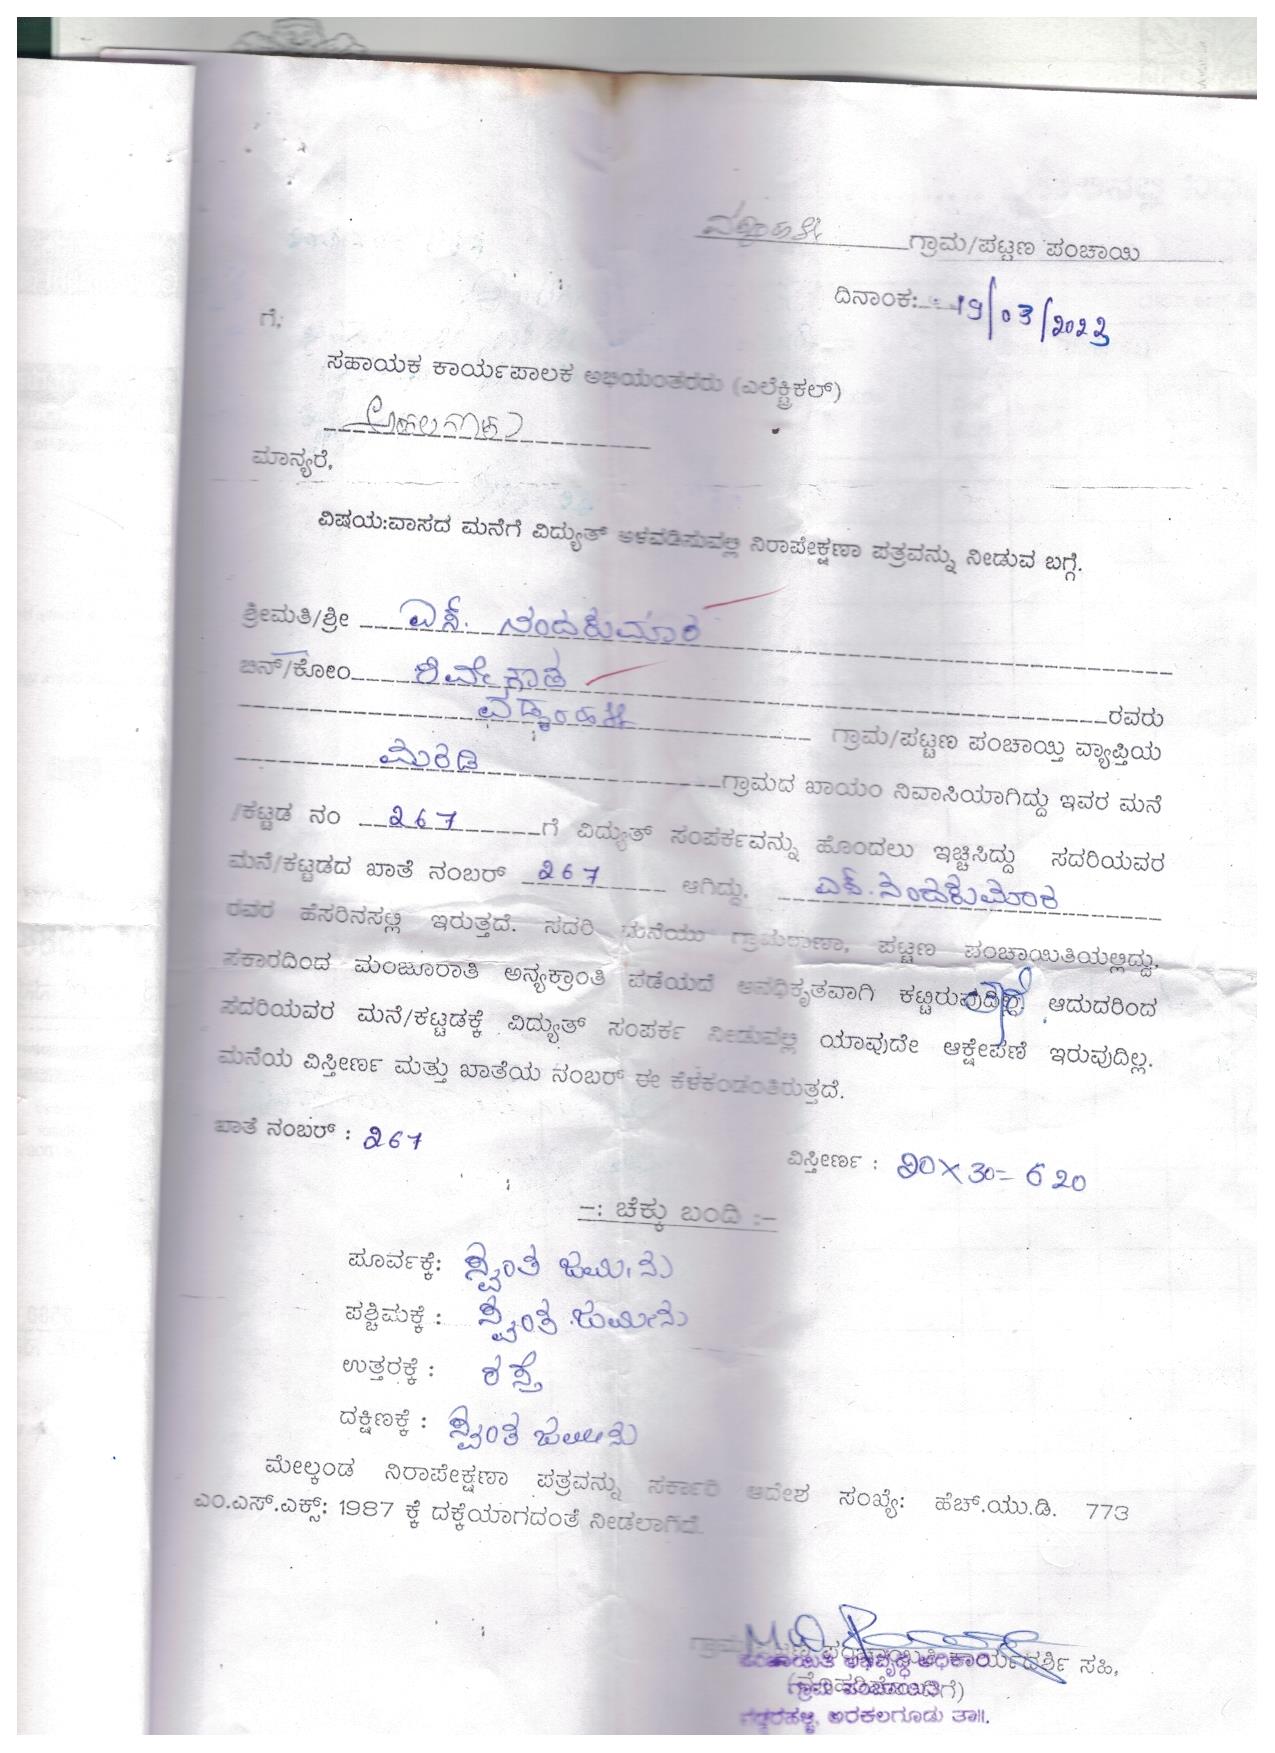 ಗ್ರಾಮ/ಪಟ್ಟಣ ಪಂಚಾಯಿ
ದಿನಾಂಕ: 19/03/2022
ಗೆ,
ಸಹಾಯಕ ಕಾರ್ಯಪಾಲಕ ಅಭಿಯಂತರರು (ಎಲೆಕ್ಟ್ರಿಕಲ್)
ಮಾನ್ಯರೆ,
ವಿಷಯ:ವಾಸದ ಮನೆಗೆ ವಿದ್ಯುತ್ ಅಳವಡಿಸುವಲ್ಲಿ ನಿರಾಪೇಕ್ಷಣಾ ಪತ್ರವನ್ನು ನೀಡುವ ಬಗ್ಗೆ.
ಶ್ರೀಮತಿ/ಶ್ರೀ ಎಸ್. ನಂದಕುಮಾರ
ಬಿನ್/ಕೋಂ ರವರು
ಗ್ರಾಮ/ಪಟ್ಟಣ ಪಂಚಾಯ್ತಿ ವ್ಯಾಪ್ತಿಯ
ಮರಡಿ ಗ್ರಾಮದ ಖಾಯಂ ನಿವಾಸಿಯಾಗಿದ್ದು ಇವರ ಮನೆ
/ಕಟ್ಟಡ ನಂ 267 ಗೆ ವಿದ್ಯುತ್ ಸಂಪರ್ಕವನ್ನು ಹೊಂದಲು ಇಚ್ಚಿಸಿದ್ದು ಸದರಿಯವರ
ಮನೆ/ಕಟ್ಟಡದ ಖಾತೆ ನಂಬರ್ 267 ಆಗಿದ್ದು, ಎಸ್. ನಂದಕುಮಾರ
ರವರ ಹೆಸರಿನಸಲ್ಲಿ ಇರುತ್ತದೆ. ಸದರಿ ಮನೆಯು ಗ್ರಾಮಠಾಣಾ, ಪಟ್ಟಣ ಪಂಚಾಯಿತಿಯಲ್ಲಿದ್ದು,
ಸಕಾರದಿಂದ ಮಂಜೂರಾತಿ ಅನ್ಯಕ್ರಾಂತಿ ಪಡೆಯದೆ ಅನಧಿಕೃತವಾಗಿ ಕಟ್ಟಿರುವುದಿಲ್ಲ ಆದುದರಿಂದ
ಸದರಿಯವರ ಮನೆ/ಕಟ್ಟಡಕ್ಕೆ ವಿದ್ಯುತ್ ಸಂಪರ್ಕ ನೀಡುವಲ್ಲಿ ಯಾವುದೇ ಆಕ್ಷೇಪಣೆ ಇರುವುದಿಲ್ಲ.
ಮನೆಯ ವಿಸ್ತೀರ್ಣ ಮತ್ತು ಖಾತೆಯ ನಂಬರ್ ಈ ಕೆಳಕಂಡಂತಿರುತ್ತದೆ.
ಖಾತೆ ನಂಬರ್ : 267
ವಿಸ್ತೀರ್ಣ : 20 x 30 = 620
-: ಚೆಕ್ಕು ಬಂದಿ :-
ಪೂರ್ವಕ್ಕೆ: ಸ್ವಂತ ಜಮೀನು
ಪಶ್ಚಿಮಕ್ಕೆ : ಸ್ವಂತ ಜಮೀನು
ಉತ್ತರಕ್ಕೆ : ರಸ್ತೆ
ದಕ್ಷಿಣಕ್ಕೆ : ಸ್ವಂತ ಜಮೀನು
ಮೇಲ್ಕಂಡ ನಿರಾಪೇಕ್ಷಣಾ ಪತ್ರವನ್ನು ಸರ್ಕಾರಿ ಆದೇಶ ಸಂಖ್ಯೆ: ಹೆಚ್.ಯು.ಡಿ. 773
ಎಂ.ಎಸ್.ಎಕ್ಸ್: 1987 ಕ್ಕೆ ದಕ್ಕೆಯಾಗದಂತೆ ನೀಡಲಾಗಿದೆ.
ಪಂಚಾಯಿತಿ ಅಭಿವೃದ್ಧಿ ಅಧಿಕಾರಿ
ಗ್ರಾಮ ಪಂಚಾಯಿತಿ
ಅರಕಲಗೂಡು ತಾ||.